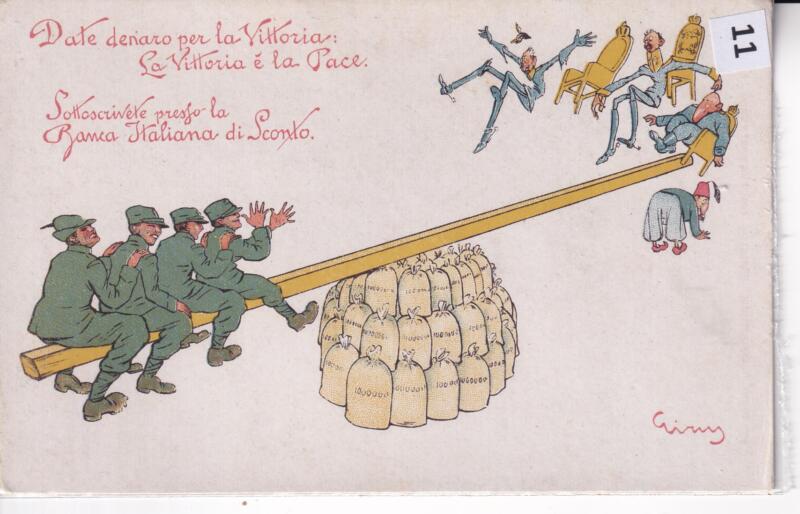 Date denaro per la Vittoria:
La Vittoria é la Pace.
Sottoscrivete presso la
Banca Italiana di Sconto.
11